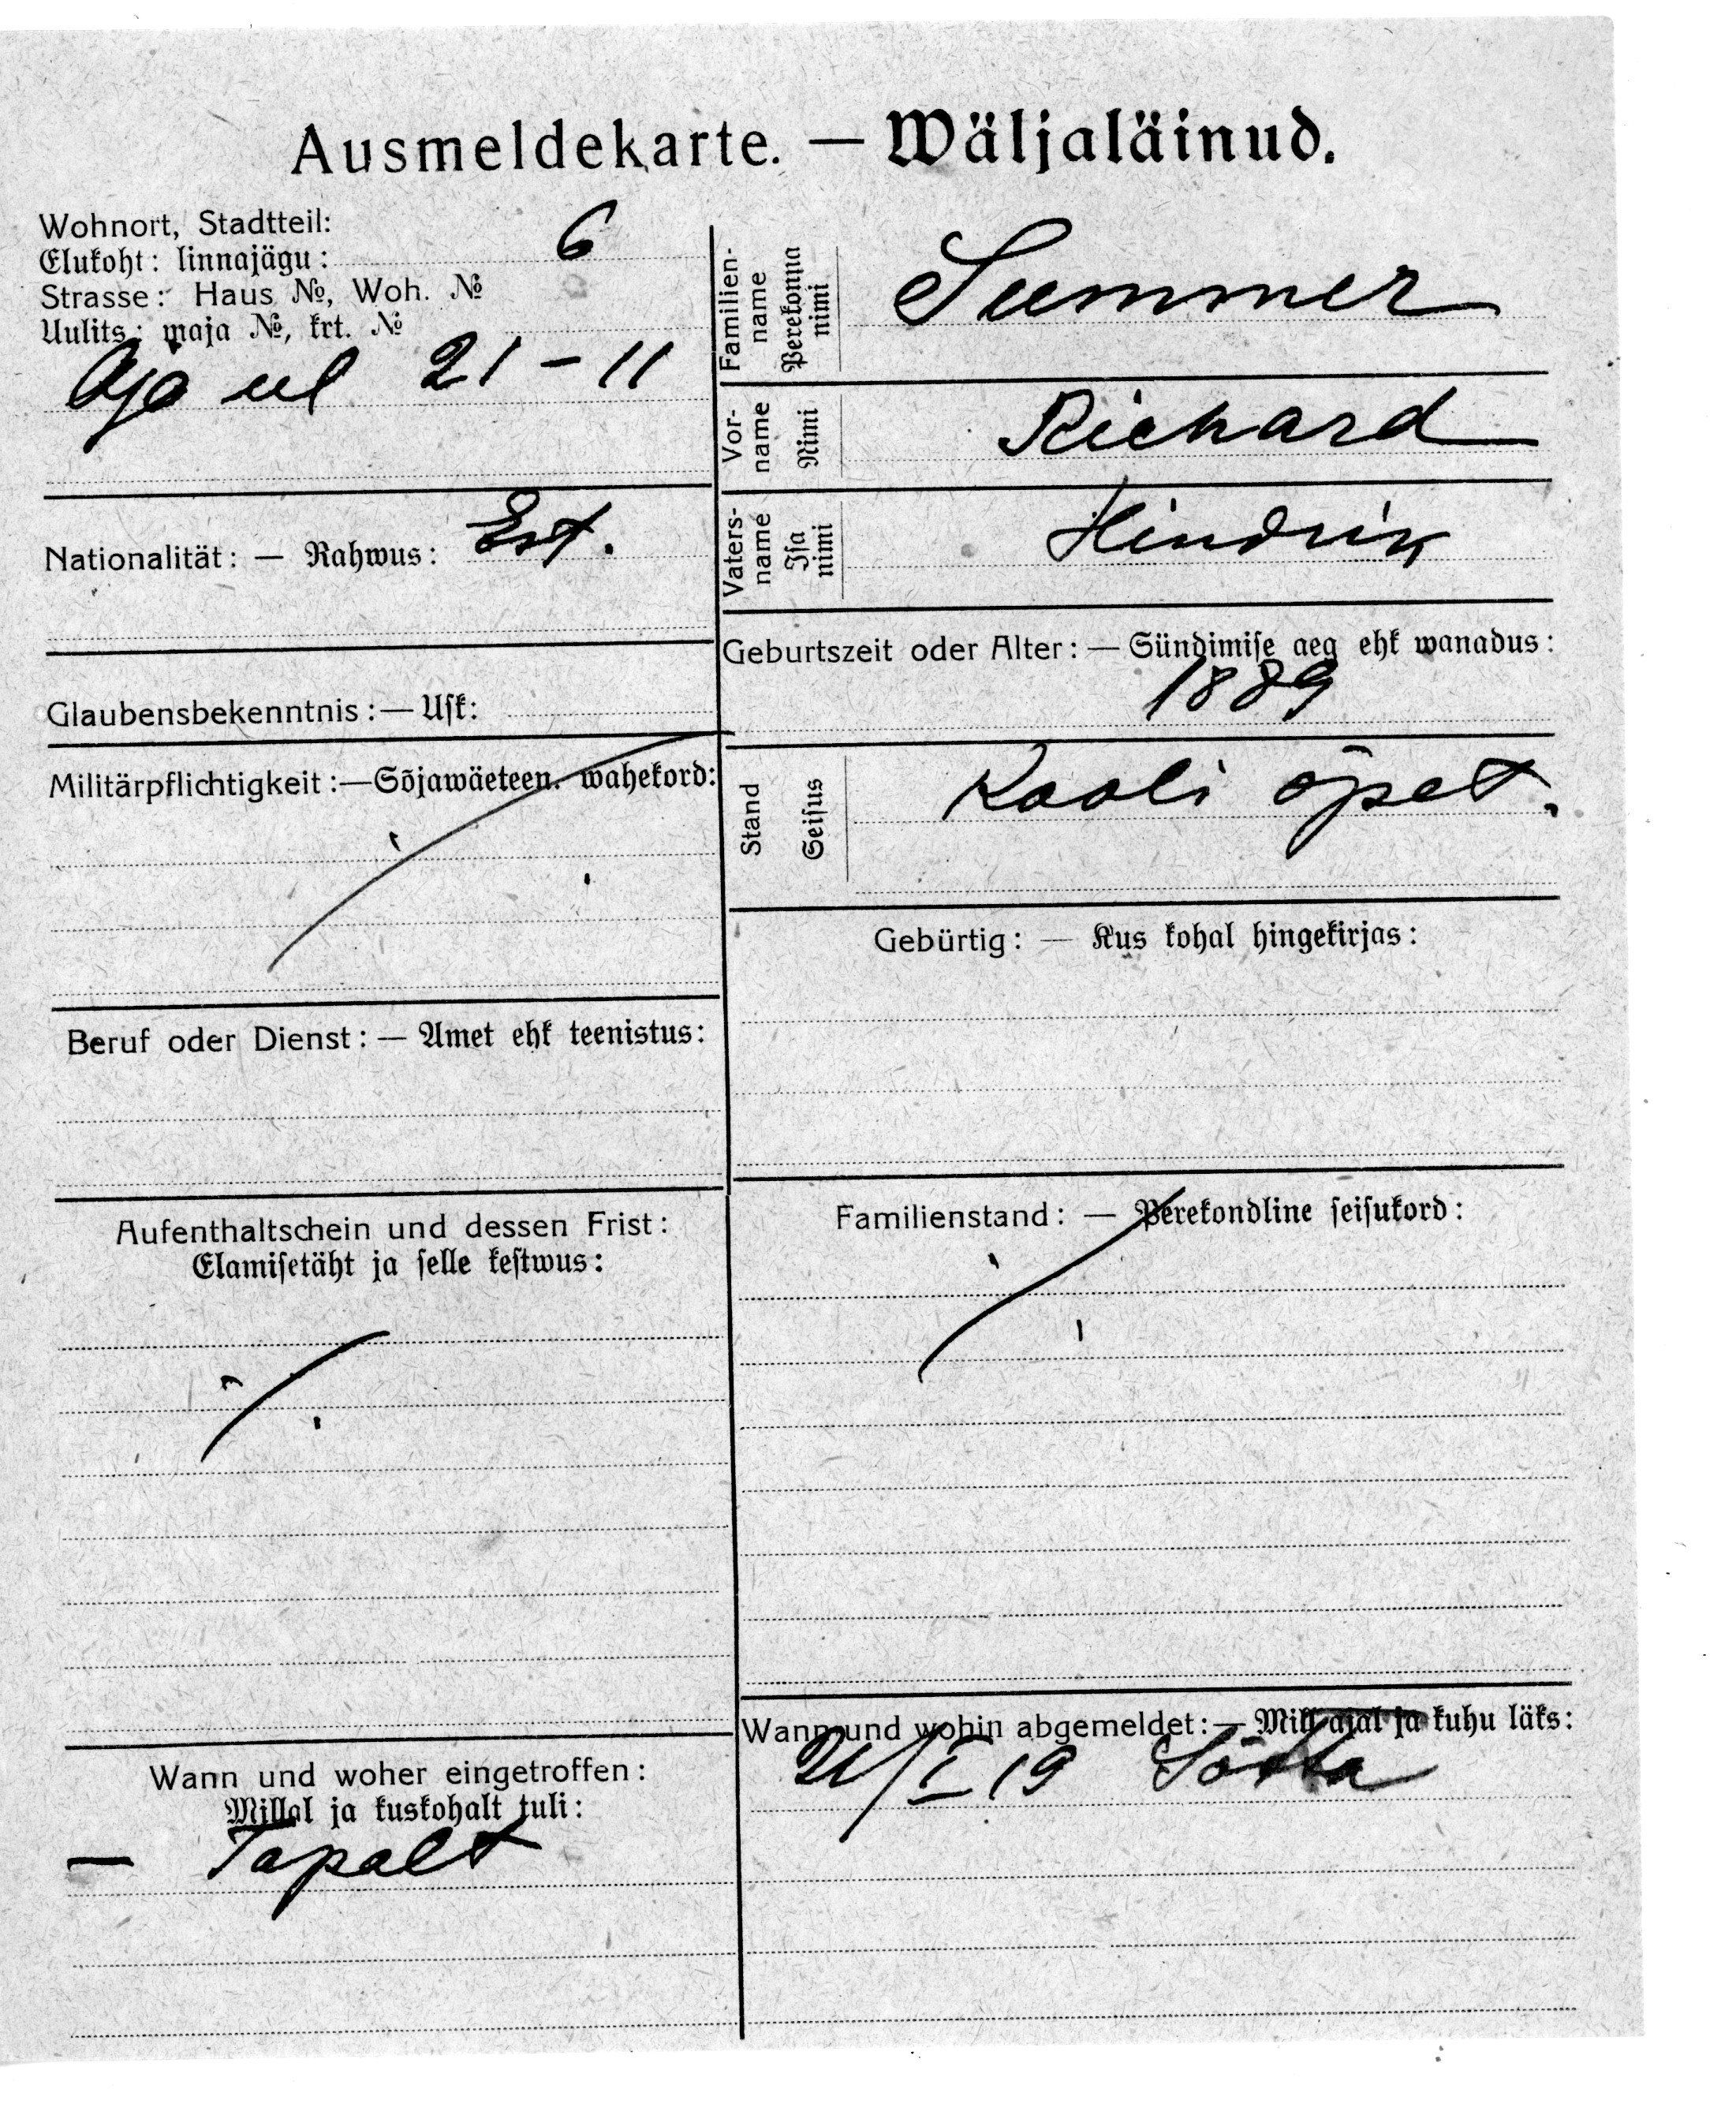 Ausmeldekarte. — Wäljaläinud.
Wohnort, Stadtteil:
Elukoht: linnajägu: 6
Strasse: Haus №, Woh. №
Uulits: maja №, krt. №
Ajo ul 21-11
Nationalität: — Rahwus: Est.
Glaubensbekenntnis: — Usk:
Militärpflichtigkeit: — Sõjawäeteen. wahekord:
Beruf oder Dienst: — Amet ehk teenistus:
Aufenthaltschein und dessen Frist:
Elamisetäht ja selle kestwus:
Wann und woher eingetroffen:
Millal ja kuskohalt tuli:
— Tapalt
Familien-
name
Perekonna
nimi
Summer
Vor-
name
Nimi
Richard
Vaters-
name
Isa
nimi
Hindrik
Geburtszeit oder Alter: — Sündimise aeg ehk wanadus:
1889
Stand
Seisus
Kooli õpet.
Gebürtig: — Kus kohal hingekirjas:
Familienstand: — Perekondline seisukord:
Wann und wohin abgemeldet: — Mill ajal ja kuhu läks:
21/I 19